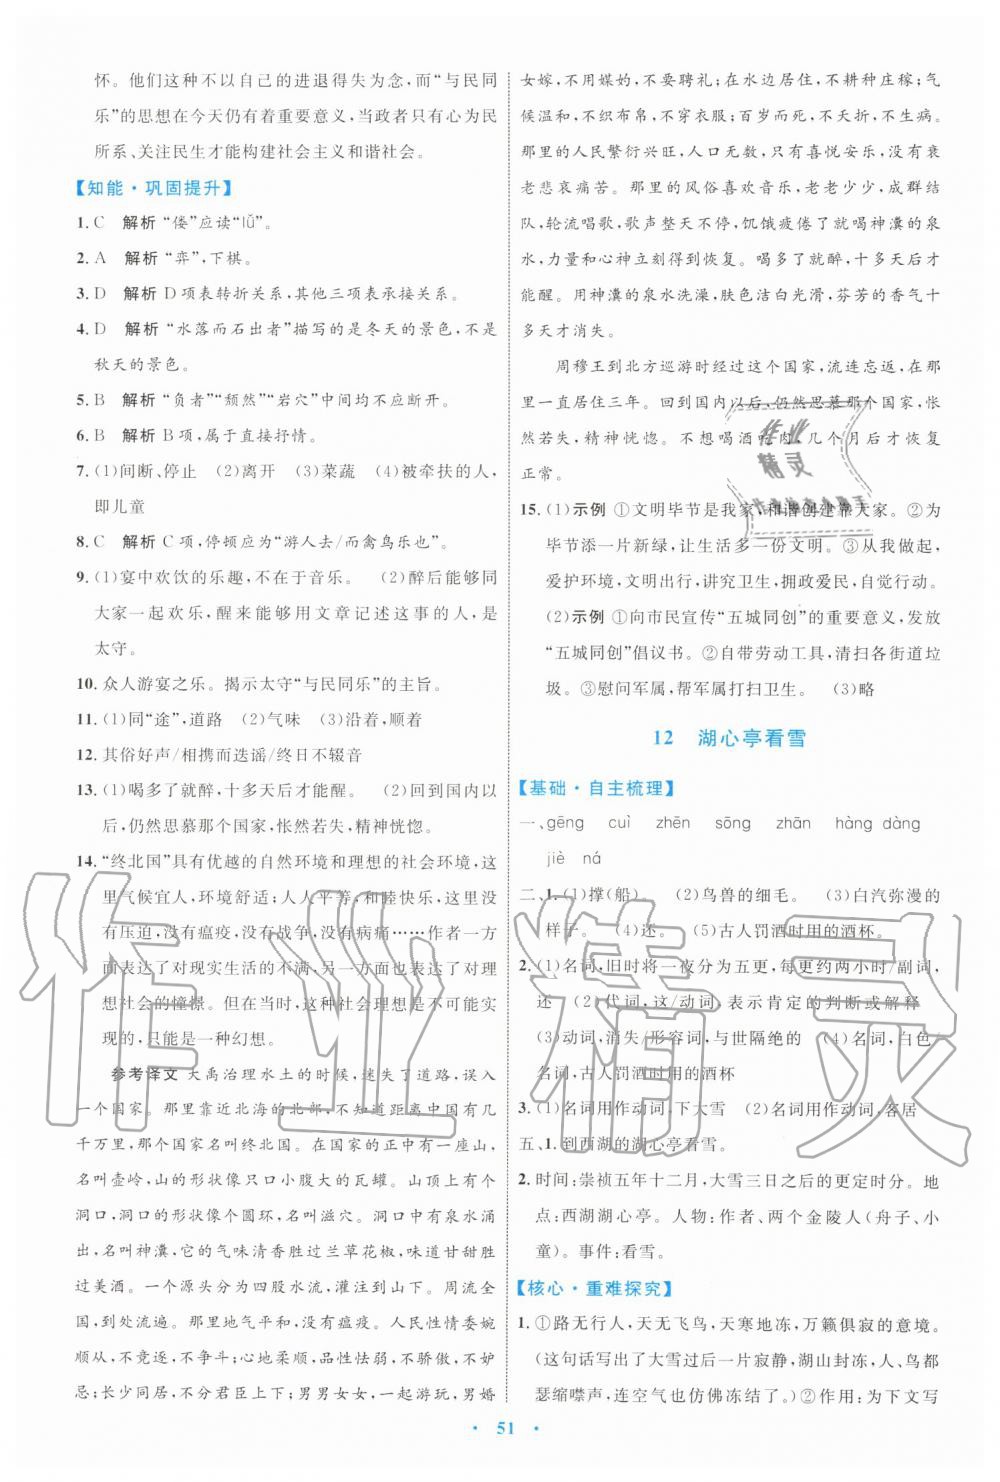 怀。他们这种不以自己的进退得失为念,而“与民同
乐”的思想在今天仍有着重要意义,当政者只有心为民
所系、关注民生才能构建社会主义和谐社会。
【知能·巩固提升】
1. C 解析 “偻”应读“lǚ”。
2. A 解析 “弈”,下棋。
3. D 解析 D项表转折关系,其他三项表承接关系。
4. D 解析 “水落而石出者”描写的是冬天的景色,不是
秋天的景色。
5. B 解析 “负者”“颓然”“岩穴”中间均不应断开。
6. B 解析 B项,属于直接抒情。
7. (1)间断、停止 (2)离开 (3)菜蔬 (4)被牵扶的人,
即儿童
8. C 解析 C项,停顿应为“游人去/而禽鸟乐也”。
9. (1)宴中欢饮的乐趣,不在于音乐。 (2)醉后能够同
大家一起欢乐,醒来能够用文章记述这事的人,是
太守。
10. 众人游宴之乐。揭示太守“与民同乐”的主旨。
11. (1)同“途”,道路 (2)气味 (3)沿着,顺着
12. 其俗好声/相携而迭谣/终日不辍音
13. (1)喝多了就醉,十多天后才能醒。 (2)回到国内以
后,仍然思慕那个国家,怅然若失,精神恍惚。
14. “终北国”具有优越的自然环境和理想的社会环境,这
里气候宜人,环境舒适;人人平等,和睦快乐,那里没
有压迫,没有瘟疫,没有战争,没有病痛……作者一方
面表达了对现实生活的不满,另一方面表达了对理
想社会的憧憬。但在当时,这种社会理想是不可能实
现的,只能是一种幻想。
参考译文 大禹治理水土的时候,迷失了道路,误入
一个国家。那里靠近北海的北部,不知道距离中国有几
千万里,那个国家名叫终北国。在国家的正中有一座山,
名叫壶岭,山的形状像个大的瓦罐。山顶上有个
洞口,洞口的形状像个圆环,名叫滋穴。洞口中有泉水涌
出,名叫神瀵,它的气味清香胜过兰草花椒,味道甘甜胜
过美酒。一个源头分为四股水流,灌注到山下。周流全
国,到处流遍。那里地气平和,没有瘟疫。人民性情委婉
顺从,不竞逐,不争斗;心地柔和,品性怯弱,不骄傲,不妒
忌;长少同居,不分君臣上下;男男女女,一起游玩,男婚
女嫁,不用媒妁,不要聘礼;在水边居住,不耕种庄稼;气
候温和,不织布帛,不穿衣服;百岁而死,不夭折,不生病。
那里的人民繁衍兴旺,人口无数,享受喜悦安乐,没有衰
老悲哀痛苦。那里的风俗喜欢音乐,老老少少,成群结
队,轮流唱歌,歌声整天不停,饥饿疲倦了就喝神瀵的泉
水,力量和心神立刻得到恢复。喝多了就醉,十多天后才
能醒。用神瀵的泉水洗澡,肤色洁白光滑,芬芳的香气十
多天才消失。
周穆王到北方巡游时经过这个国家,流连忘返,在那
里一直居住三年。回到国内以后,仍然思慕那个国家,怅
然若失,精神恍惚。不想喝酒吃肉,几个月后才恢复
正常。
15. (1)示例 ①文明毕节是我家,和谐创建靠大家。②为
毕节添一片新绿,让生活多一份文明。③从我做起,
爱护环境,文明出行,讲究卫生,拥政爱民,自觉行动。
(2)示例 ①向市民宣传“五城同创”的重要意义,发放
“五城同创”倡议书。②自带劳动工具,清扫各街道垃
圾。③慰问军属,帮军属打扫卫生。 (3)略
12 湖心亭看雪
【基础·自主梳理】
一、gēng cuì zhēn sōng zhān hàng dàng
jiè ná
二、1. (1)撑(船) (2)鸟兽的细毛。 (3)白汽弥漫的
样子。 (4)还。 (5)古人罚酒时用的酒杯。
2. (1)名词,旧时将一夜分为五更,每更约两小时/副词,
还 (2)代词,这/动词,表示肯定的判断或解释
(3)动词,消失/形容词,与世隔绝的 (4)名词,白色/
名词,古人罚酒时用的酒杯
3. (1)名词用作动词,下大雪 (2)名词用作动词,客居
五、1. 到西湖的湖心亭看雪。
2. 时间:崇祯五年十二月,大雪三日之后的更定时分。地
点:西湖湖心亭。人物:作者、两个金陵人(舟子、小
童)。事件:看雪。
【核心·重难探究】
1. ①路无行人,天无飞鸟,天寒地冻,万籁俱寂的意境。
(这句话写出了大雪过后一片寂静,湖山封冻,人、鸟都
瑟缩噤声,连空气也仿佛冻结了。)②作用:为下文写
· 51 ·
作业精灵
作业
精灵